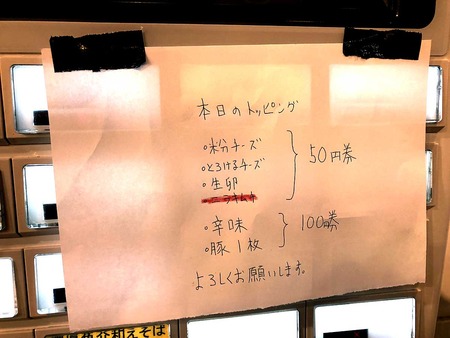 本日のトッピング
。粉チーズ
。とろけるチーズ
。生卵
50円券
。辛味
。豚1枚
100円券
よろしくお願いします。